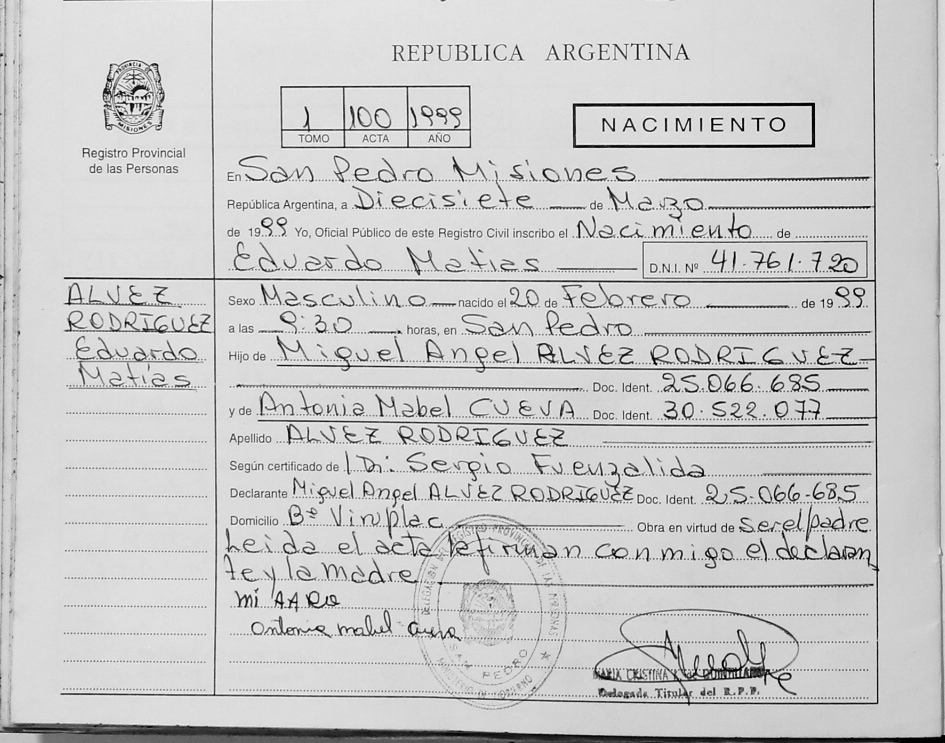 REPUBLICA ARGENTINA
PROVINCIA DE MISIONES
Registro Provincial
de las Personas
1 100 1999
TOMO ACTA AÑO
NACIMIENTO
En San Pedro Misiones
República Argentina, a Diecisiete de Marzo
de 1999 Yo, Oficial Público de este Registro Civil inscribo el Nacimiento de
Eduardo Matias D.N.I. Nº 41.761.720
ALVEZ
RODRIGUEZ
Eduardo
Matías
Sexo Masculino nacido el 20 de Febrero de 1999
a las 9:30 horas, en San Pedro
Hijo de Miguel Angel ALVEZ RODRIGUEZ
Doc. Ident. 25.066.685
y de Antonia Mabel CUEVA Doc. Ident. 30.522.077
Apellido ALVEZ RODRIGUEZ
Según certificado de Dr. Sergio Fuenzalida
Declarante Miguel Angel ALVEZ RODRIGUEZ Doc. Ident. 25.066-685
Domicilio Bº Viruplac Obra en virtud de ser el padre
Leida el acta la firman conmigo el declaran
te y la madre
mi AARO
Antonia mabel cueva
SAN PEDRO
MARIA CRISTINA K de
Delegada Titular del R.P.P.